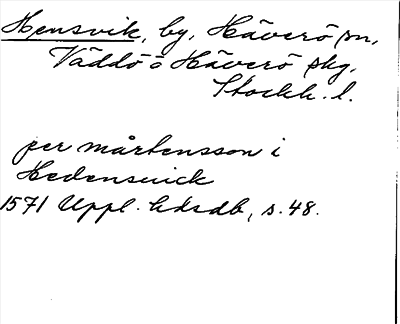 Hensvik, by, Häverö sn,
Väddö o Häverö skg,
Stockh. l.
per mårtensson i
Hedensuick
1571 Uppl. hdsdb, s. 48.